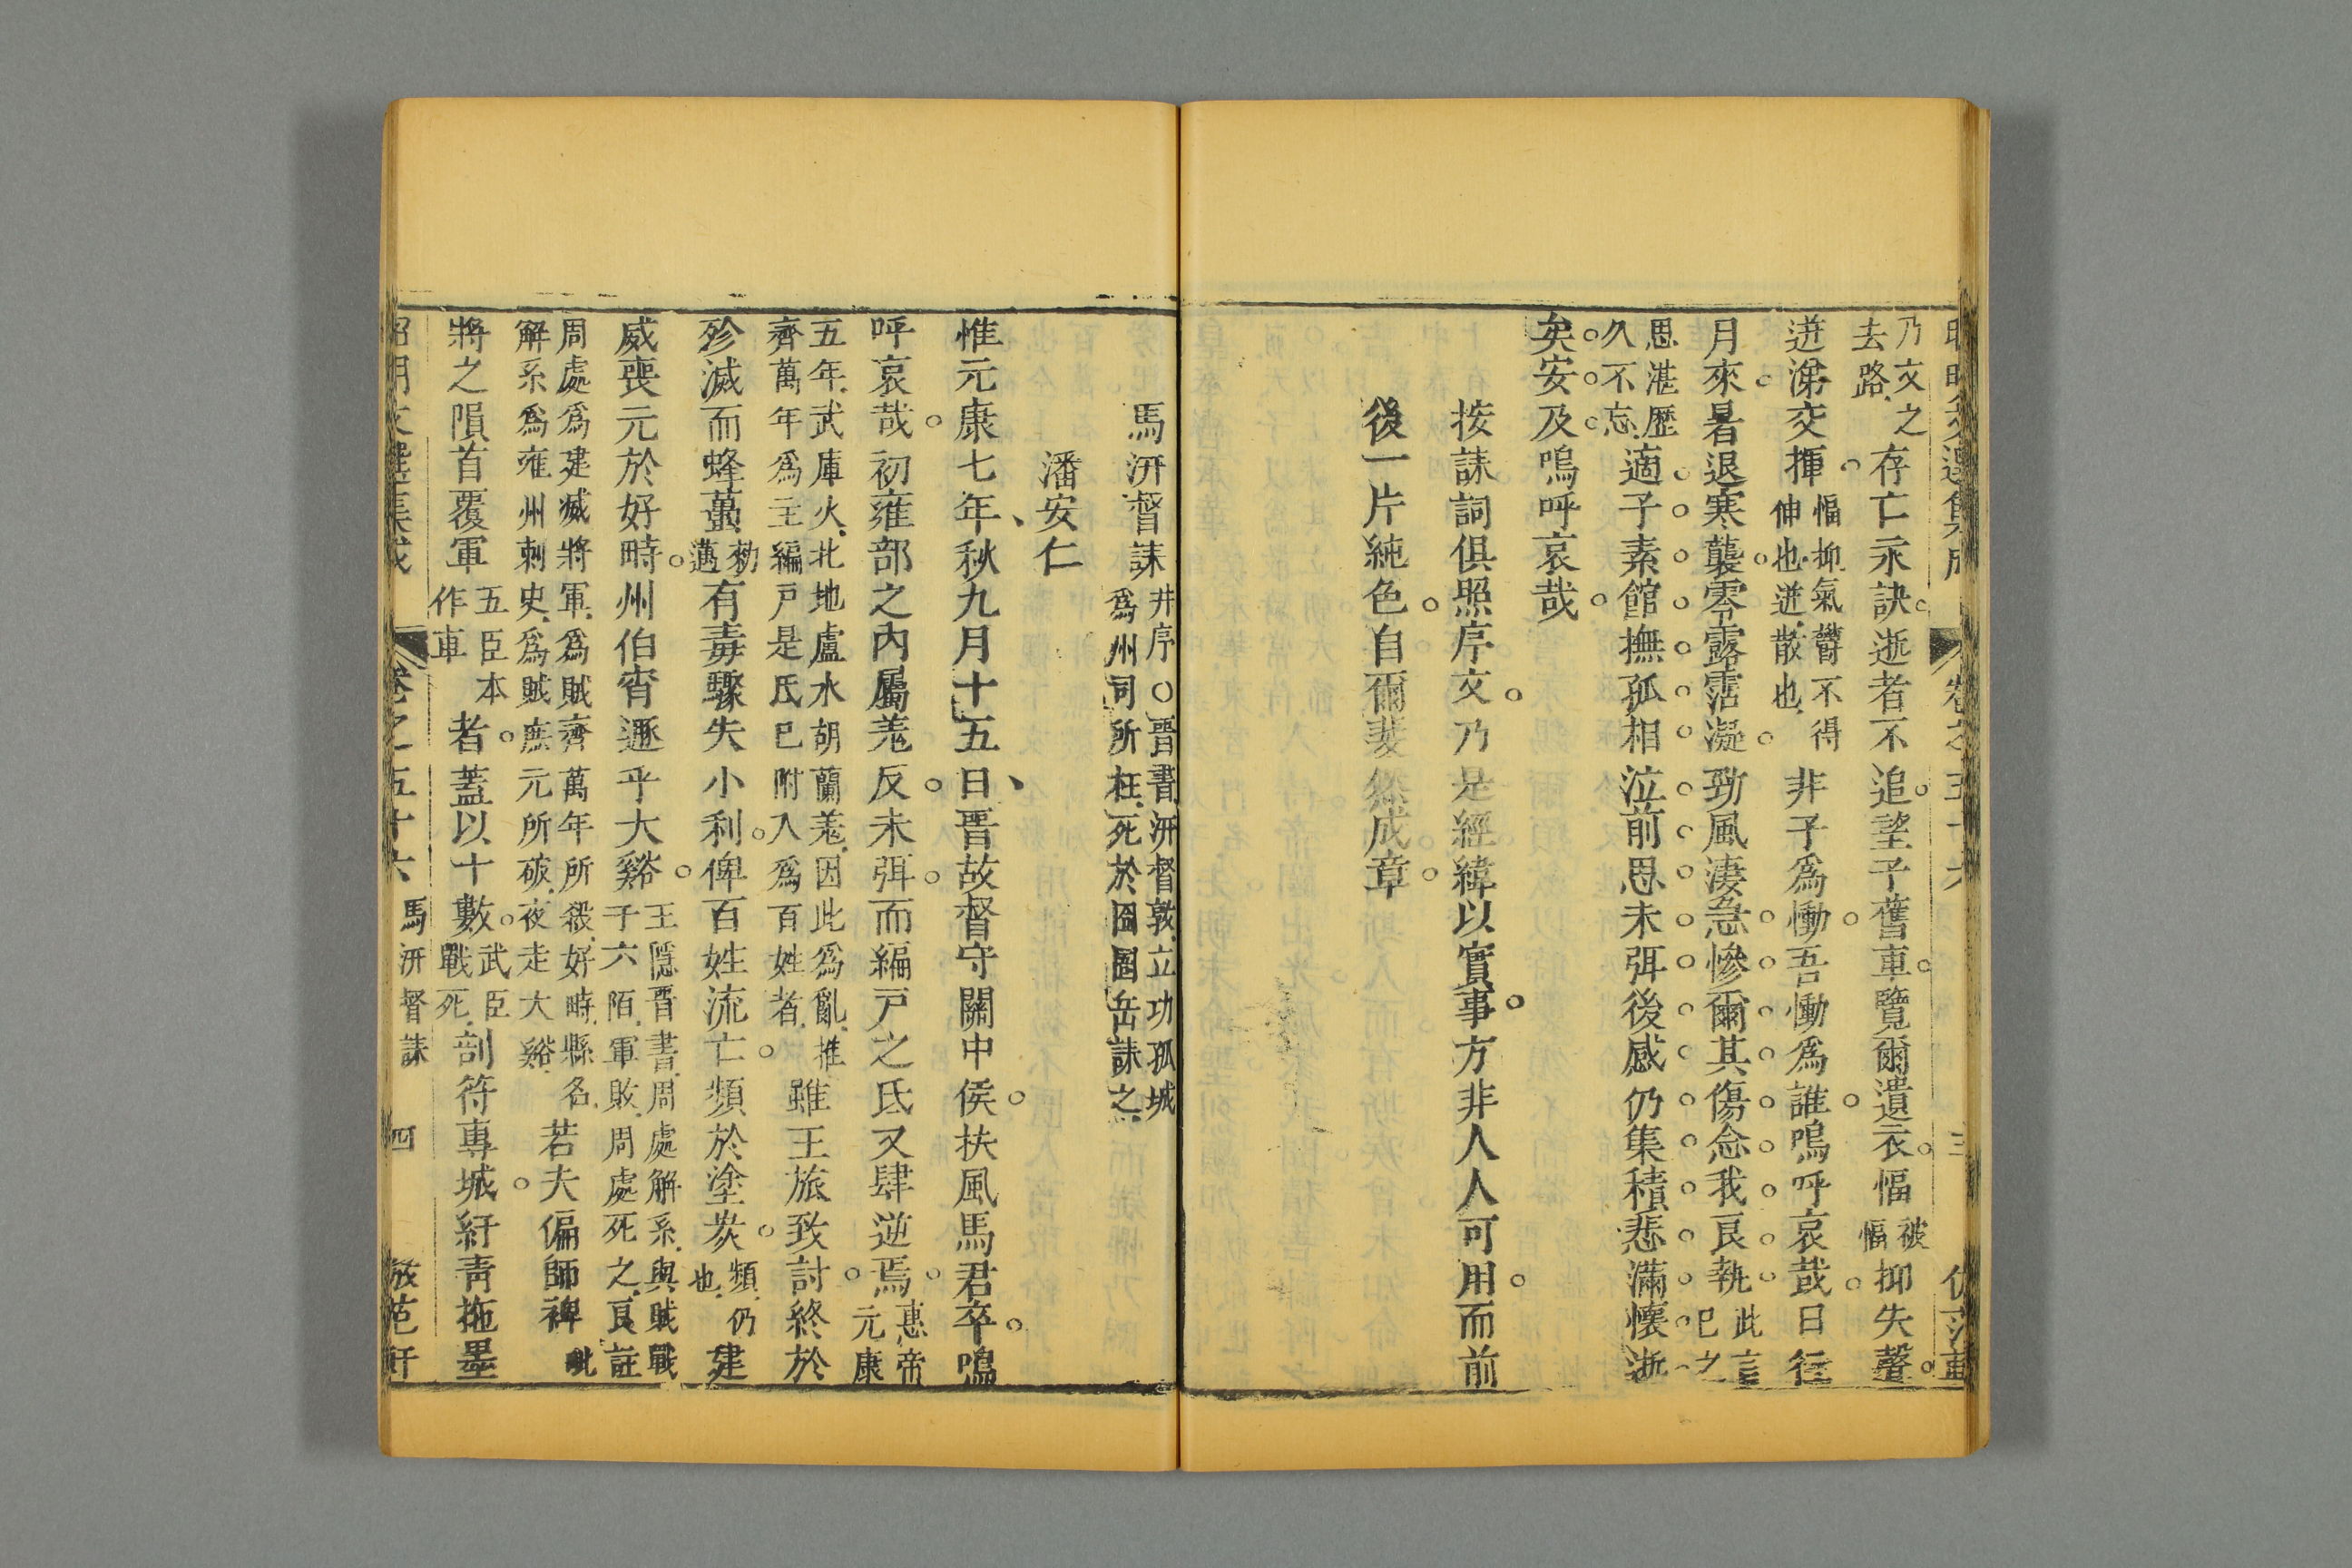 昭明文選集成 卷之五十六 三 倣范軒
乃交之
去路
存亡永訣逝者不追望子舊車覽爾遺衣愊
被
愊
抑失聲
迸涕交揮
愊抑氣鬱不得
伸也迸散也
非子為慟吾慟為誰嗚呼哀哉日往
月來暑退寒襲零露霑凝勁風淒急慘爾其傷念我良執
此言
已之
思湛歷
久不忘
適子素館撫孤相泣前思未弭後感仍集積悲滿懷逝
矣安及嗚呼哀哉
按誄詞俱照序文乃是經緯以實事方非人人可用而前
後一片純色自爾斐然成章
馬汧督誄
并序○晋書汧督敦立功孤城
為州司所枉死於囹圄岳誄之
潘安仁
惟元康七年秋九月十五日晋故督守關中侯扶風馬君卒嗚
呼哀哉初雍部之內屬羌反未弭而編戸之氐又肆逆焉
惠帝
元康
五年武庫火北地盧水胡蘭羌因此為亂推
齊萬年為主編戸是氐已附入為百姓者
雖王旅致討終於
殄滅而蜂蠆
勑
邁
有毒驟失小利俾百姓流亡頻於塗炭
頻仍
也
建
威喪元於好畤州伯宵遯乎大谿
王隱晋書周處解系與賊戰
于六陌軍敗周處死之良註
周處為建威將軍為賊齊萬年所殺好畤縣名
解系為雍州刺史為賊庶元所破夜走大谿
若夫偏師裨
毗
將之隕首覆軍
五臣本
作車
者蓋以十數
武臣
戰死
剖符專城紆青拖墨
昭明文選集成 卷之五十六 馬汧督誄 四 倣范軒